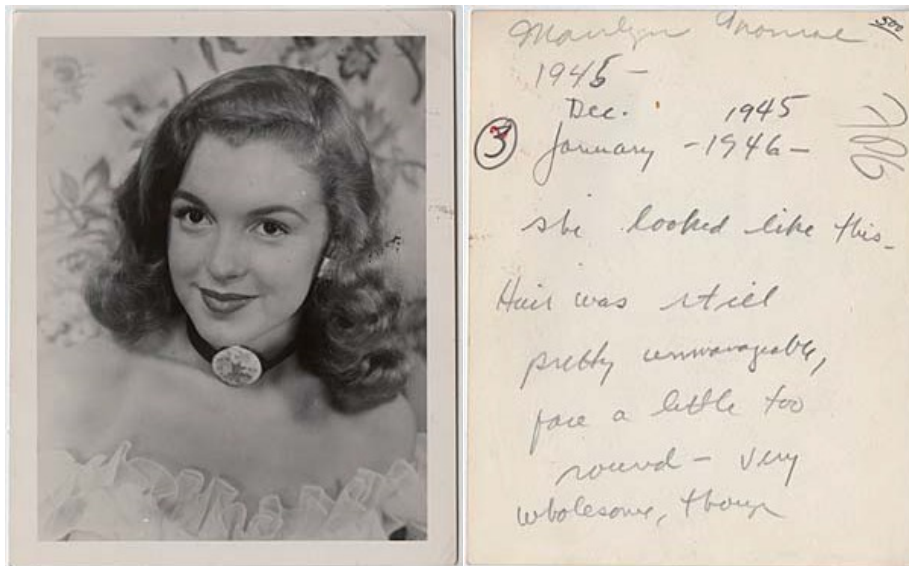 Marilyn Monroe
500
1945 -
Dec. 1945
3
January - 1946 -
she looked like this -
Hair was still
pretty unmanageable,
face a little too
round - very
wholesome, though